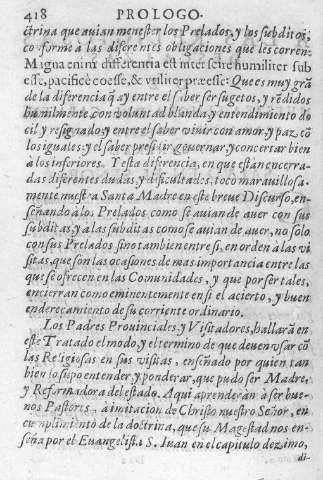 418 PROLOGO.
ctrina que auian menester los Prelados, y los subditos;
cõforme à las diferentes obligaciones que les corren.
Migna enim differentia est inter scire humiliter sub
esse, pacificè coesse, & vtiliter præesse: Que es muy grã
de la diferencia q̃ ay entre el saber ser sugetos, y rẽdidos
humilmente con voluntad blanda, y entendimiento do
cil y resignado, y entre el saber viuir con amor, y paz, cõ
los iguales: y el saber presidir gouernar, y concertar bien
à los inferiores. Y esta diferencia, en que estàn encerra-
das diferentes dudas, y dificultades, toco marauillosa-
mente nuestra Santa Madre en este breue Discurso, en-
señando à lo, Prelados como se auian de auer con sus
subditas, y à las subditas como se auian de auer, no solo
con sus Prelados sino tambien entre si, en orden à las vi
sitas, que son las ocasiones de mas importancia entre las
que se ofrecen en las Comunidades, y que por ser tales,
encierran como eminentemente en si el acierto, y buen
enderecamiento de su corriente ordinario.
Los Padres Prouinciales, y Visitadores, hallarã en
este Tratado el modo, y el termino de que deuen vsar cõ
las Religiosas en sus visitas, enseñado por quien tan
bien lo supo entender, y ponderar, que pudo ser Madre,
y Reformadora del estado. Aqui aprenderàn à ser bue-
nos Pastores, a imitacion de Christo nuestro Señor, en
cumplimiento de la doctrina, que su Magestad nos en-
seña por el Euangelista S. Iuan en el capitulo dezimo,
di-